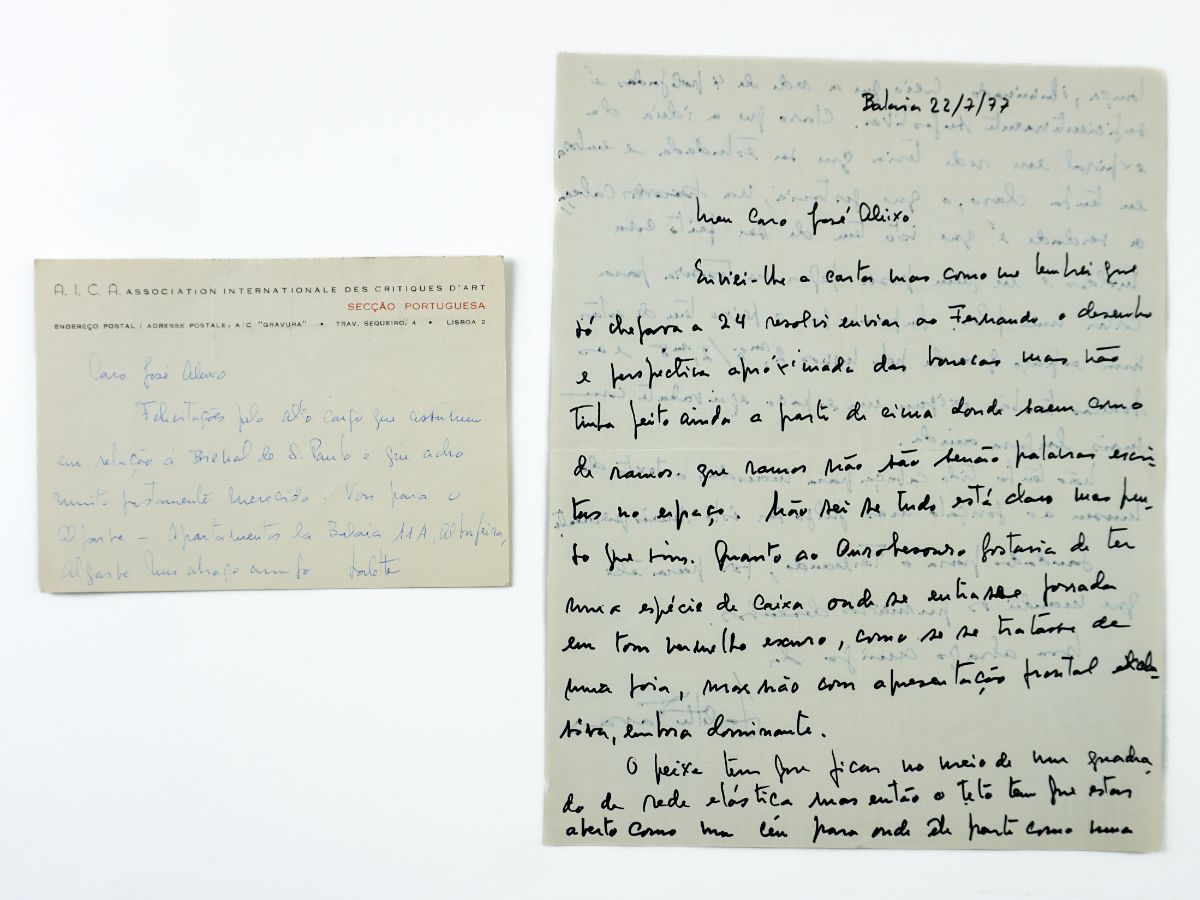 A. I. C. A. ASSOCIATION INTERNATIONALE DES CRITIQUES D'ART
SECÇÃO PORTUGUESA
ENDEREÇO POSTAL / ADRESSE POSTALE, A/C "GRAVURA" • TRAV. SEQUEIRO, 4 • LISBOA 2
Caro José Aleixo
Felicitações pelo alto cargo que
em relação à Bienal de S. Paulo e que acho
muito justamente merecido. Vou para o
Algarve – Apartamentos la Balaia 11A, Albufeira,
Algarve. Um abraço amigo
Balaia 22/7/77
Meu Caro José Aleixo.
Enviei-lhe a carta mas como me lembrei que
só chegava a 24 resolvi enviar ao Fernando o desenho
e perspectiva apróximada das bonecas mas não
tinha feito ainda a parte de cima donde saem como
de ramos. que ramos não são senão palavras escri-
tas no espaço. Não sei se tudo está claro mas pen-
so que sim. Quanto ao gostaria de ter
uma espécie de caixa onde se entrasse forrada
em tom vermelho escuro, como se se tratasse de
uma joia, mas não com apresentação frontal
embora dominante.
O peixe tem que ficar no meio de um quadra-
do de rede elástica mas então o teto tem que estar
aberto como um céu para onde ele parte como uma